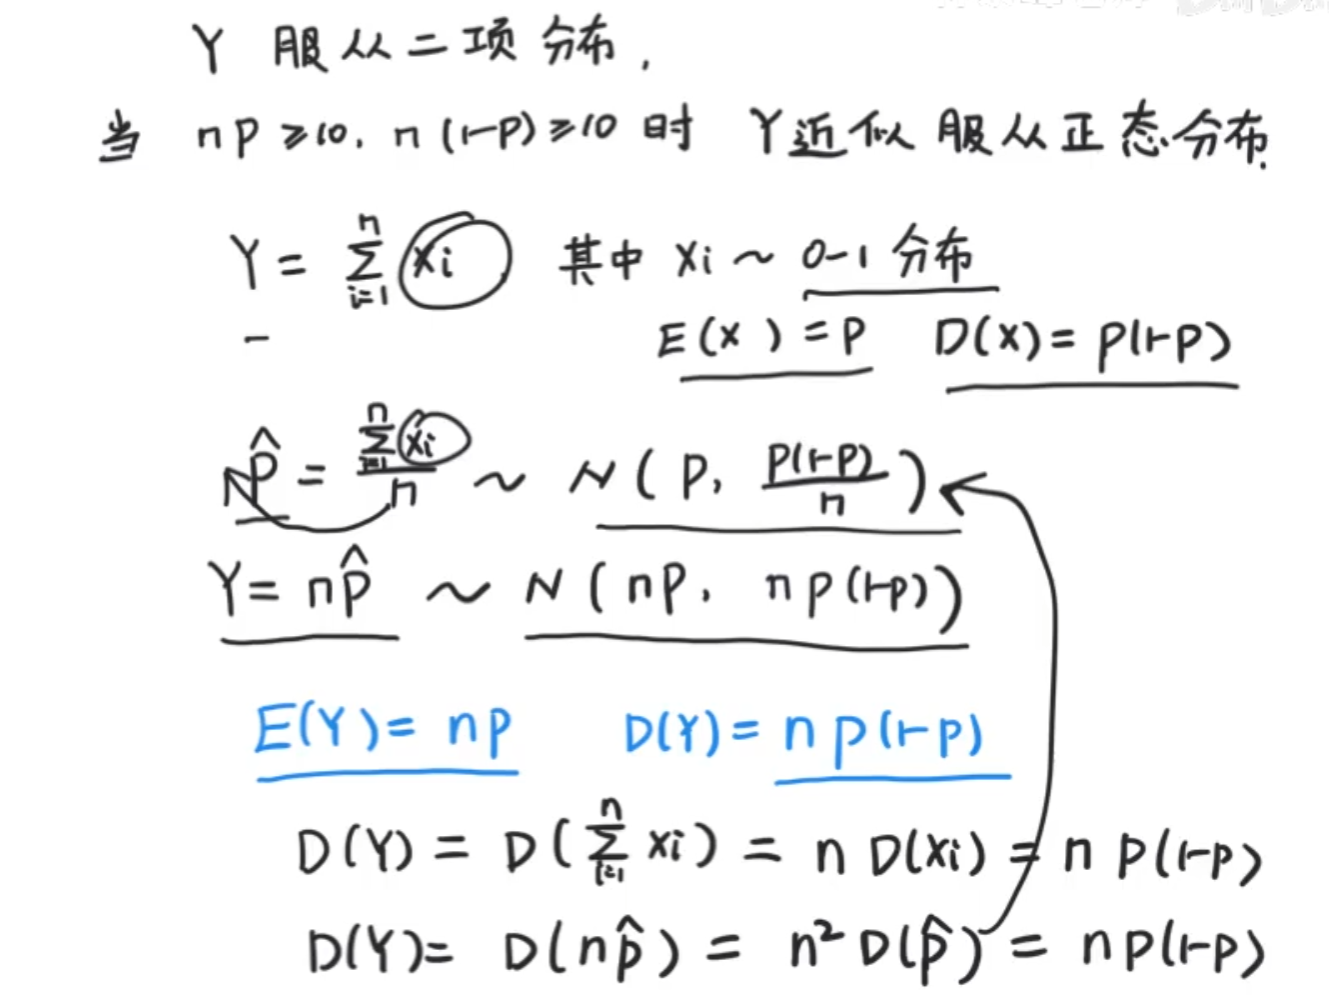 Y 服从二项分布,
当 np ≥ 10, n(1-p) ≥ 10 时 Y近似服从正态分布.
Y = \sum_{i=1}^{n} xi 其中 xi ~ 0-1 分布
E(x) = p D(x) = p(1-p)
n\hat{p} = \frac{\sum_{i=1}^{n} xi}{n} ~ N(p, \frac{p(1-p)}{n})
Y = n\hat{p} ~ N(np, np(1-p))
E(Y) = np D(Y) = np(1-p)
D(Y) = D(\sum_{i=1}^{n} xi) = n D(xi) = n p(1-p)
D(Y) = D(n\hat{p}) = n² D(\hat{p}) = np(1-p)